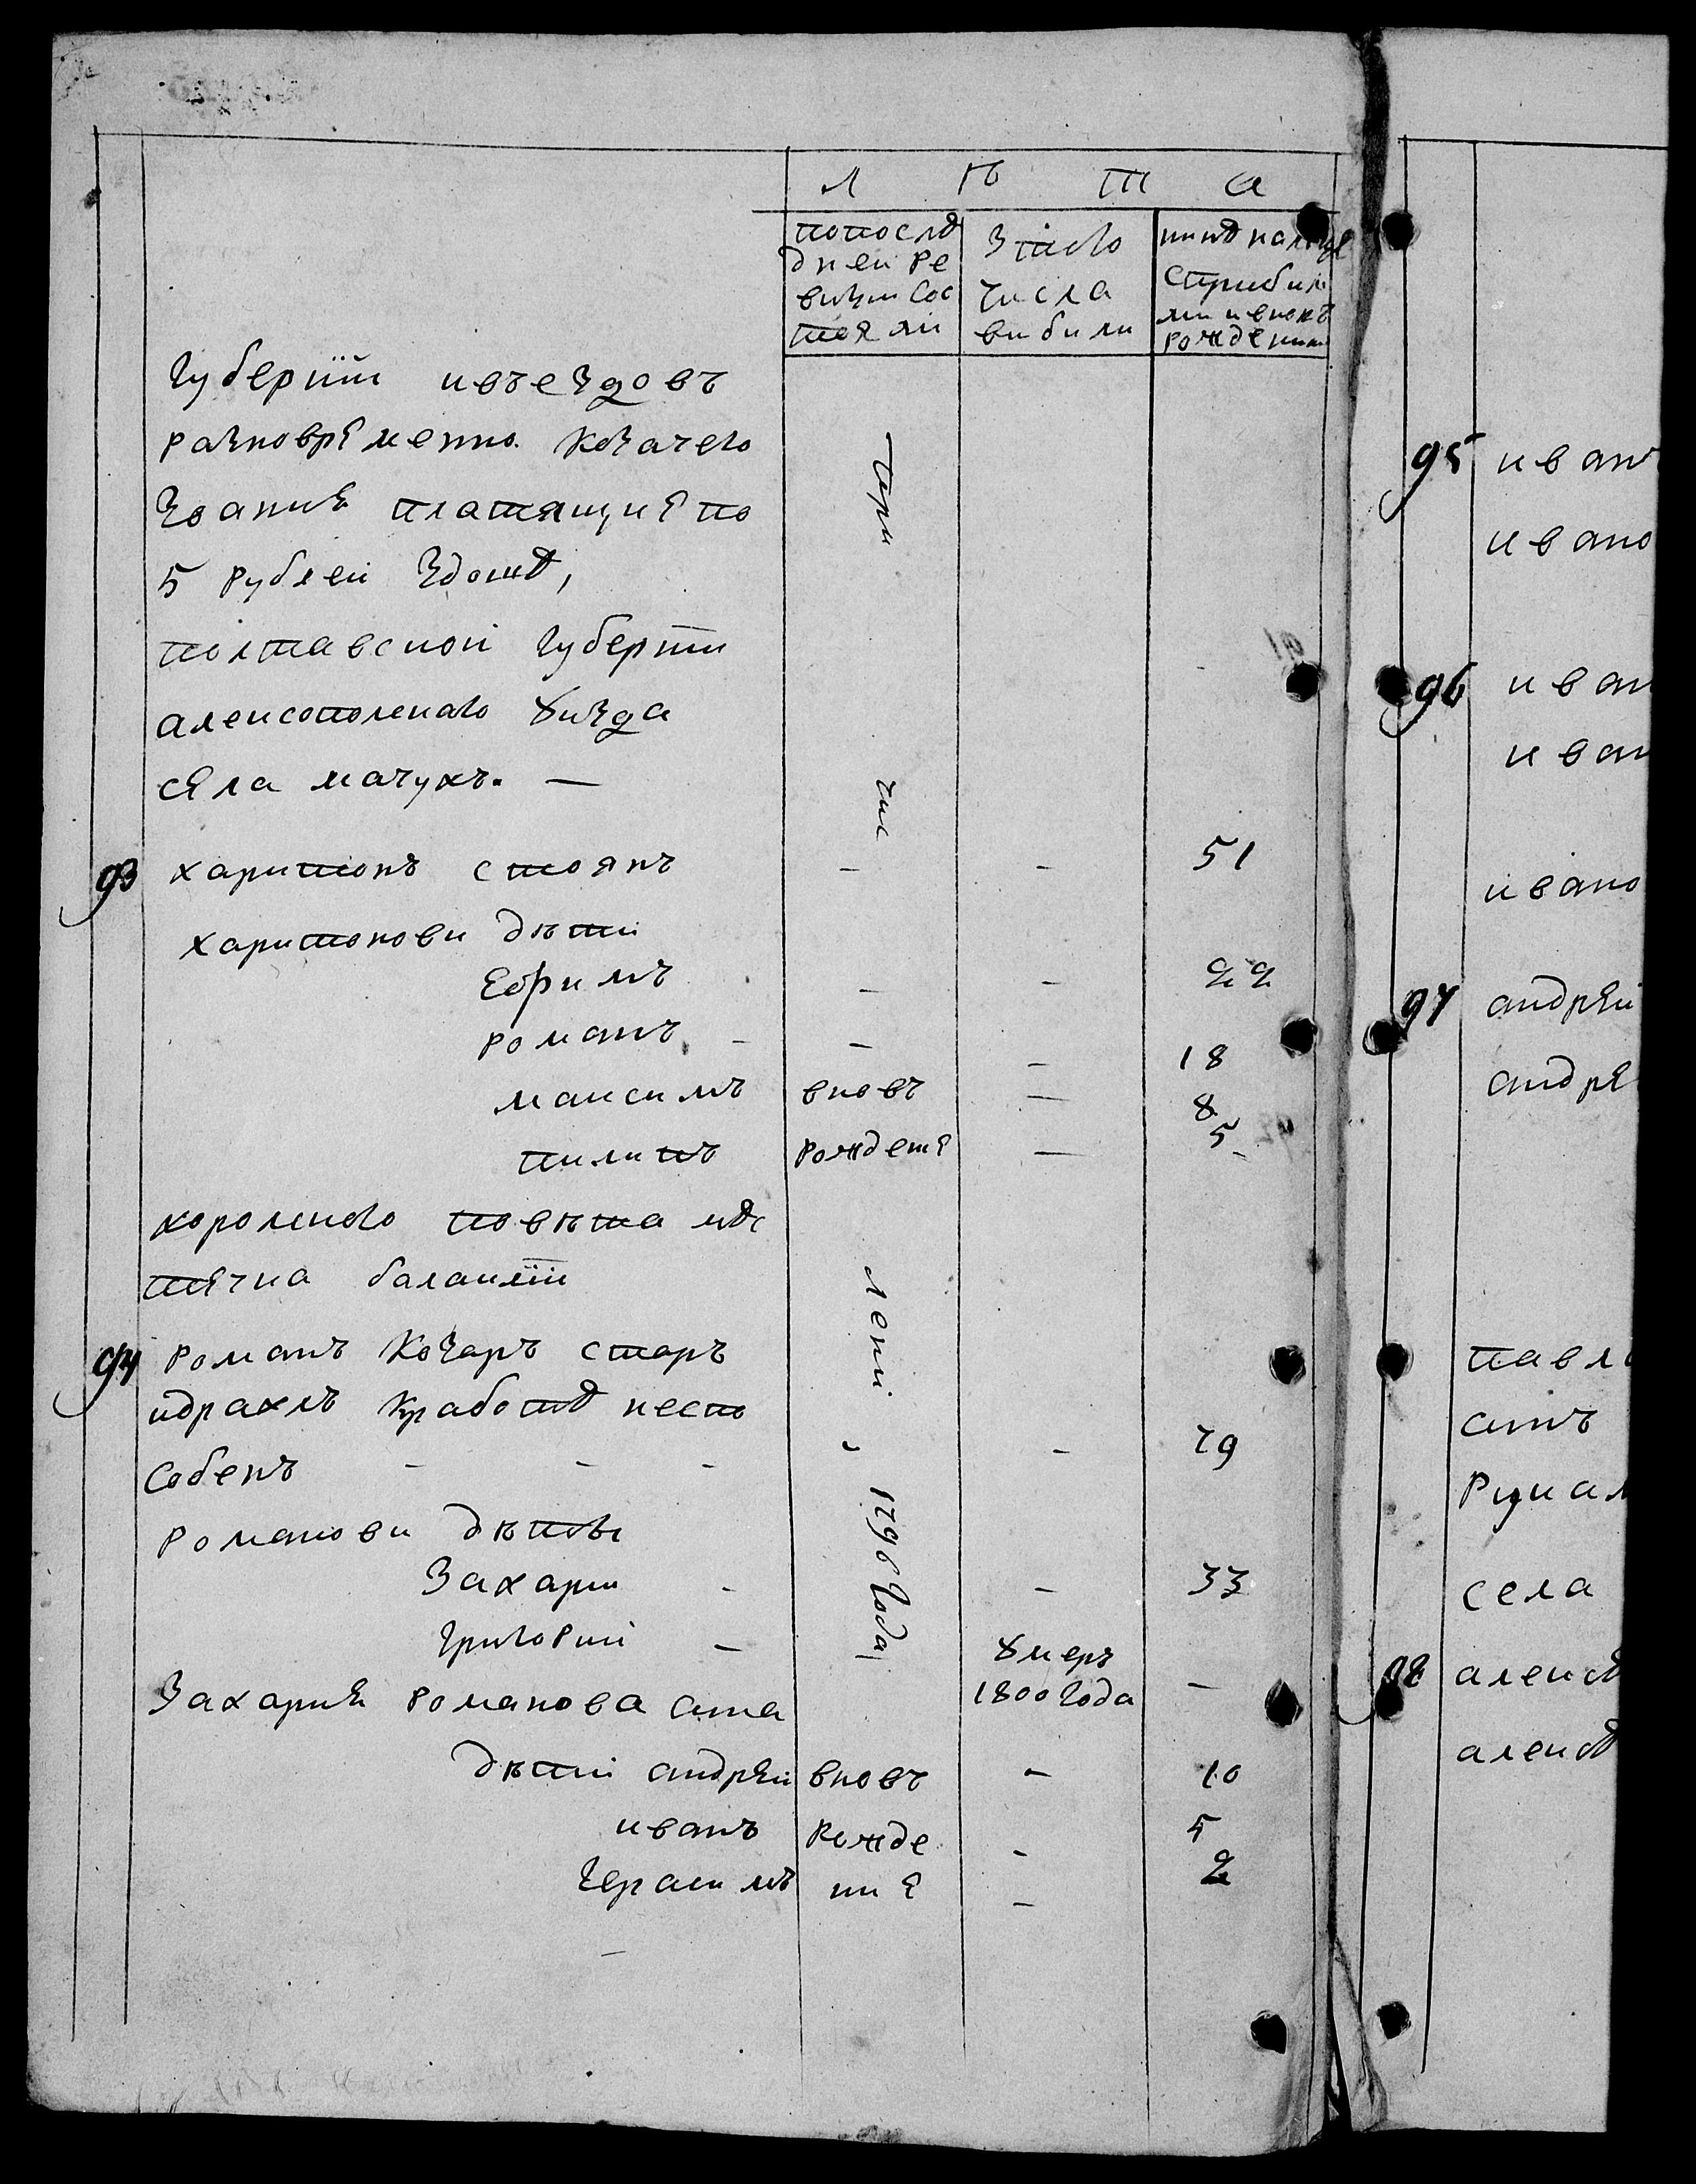 Л ѣ т а
попослѣ
дней ре
визии сос
тояли
з того
числа
вибили
нинѣ налице
сприбил
ми ивновъ
рождении
губернїи ивъездовъ
разновремѣнно козачего
звания платящие по
5 рублей здошѣ,
полтавской губернїи
алексополского уизда
села мачухъ. —
93 харитонъ стоянъ - - 51
харитонови дѣти
ефимъ - - 22
романъ - - - 18
максимъ вновъ — 8
пилипъ рожденѣ — 5
хоролского повѣта мѣс
течка балаклїи
94 романъ козаръ старъ
идрахлъ кработѣ неспо
собенъ - - - - 79
романови дѣти
захарии - - 33
григорий - умеръ
1800 года -
захария романова сина
дѣти андрей вновъ - 10
иванъ рожде - 5
герасимъ ние - 2
при
чис
лени
1796 года
95 иван
ивано
96 иван
иван
ивано
97 андрей
андре
павло
синъ
села
98 алексѣ
алексѣ